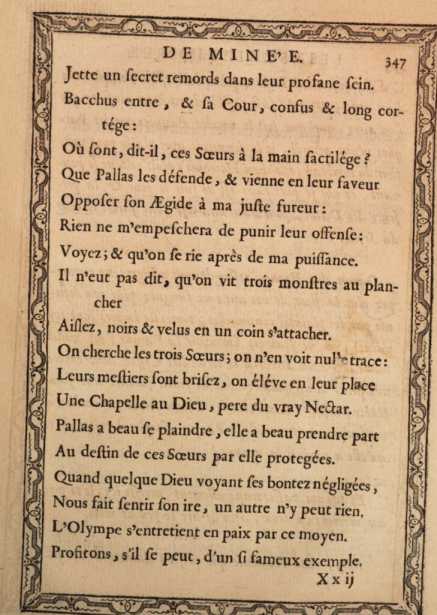 DE MINE'E. 347
Jette un ſecret remords dans leur profane ſein.
Bacchus entre, & ſa Cour, confus & long cor-
tége:
Où ſont, dit-il, ces Sœurs à la main ſacrilége?
Que Pallas les défende, & vienne en leur faveur
Oppoſer ſon Ægide à ma juſte fureur:
Rien ne m'empeſchera de punir leur offenſe:
Voyez; & qu'on ſe rie aprés de ma puiſſance.
Il n'eut pas dit, qu'on vit trois monſtres au plan-
cher
Aiſlez, noirs & velus en un coin s'attacher.
On cherche les trois Sœurs; on n'en voit nulle trace:
Leurs meſtiers ſont briſez, on éléve en leur place
Une Chapelle au Dieu, pere du vray Nectar.
Pallas a beau ſe plaindre, elle a beau prendre part
Au deſtin de ces Sœurs par elle protegées.
Quand quelque Dieu voyant ſes bontez négligées,
Nous fait ſentir ſon ire, un autre n'y peut rien.
L'Olympe s'entretient en paix par ce moyen.
Profitons, s'il ſe peut, d'un ſi fameux exemple.
X x ij